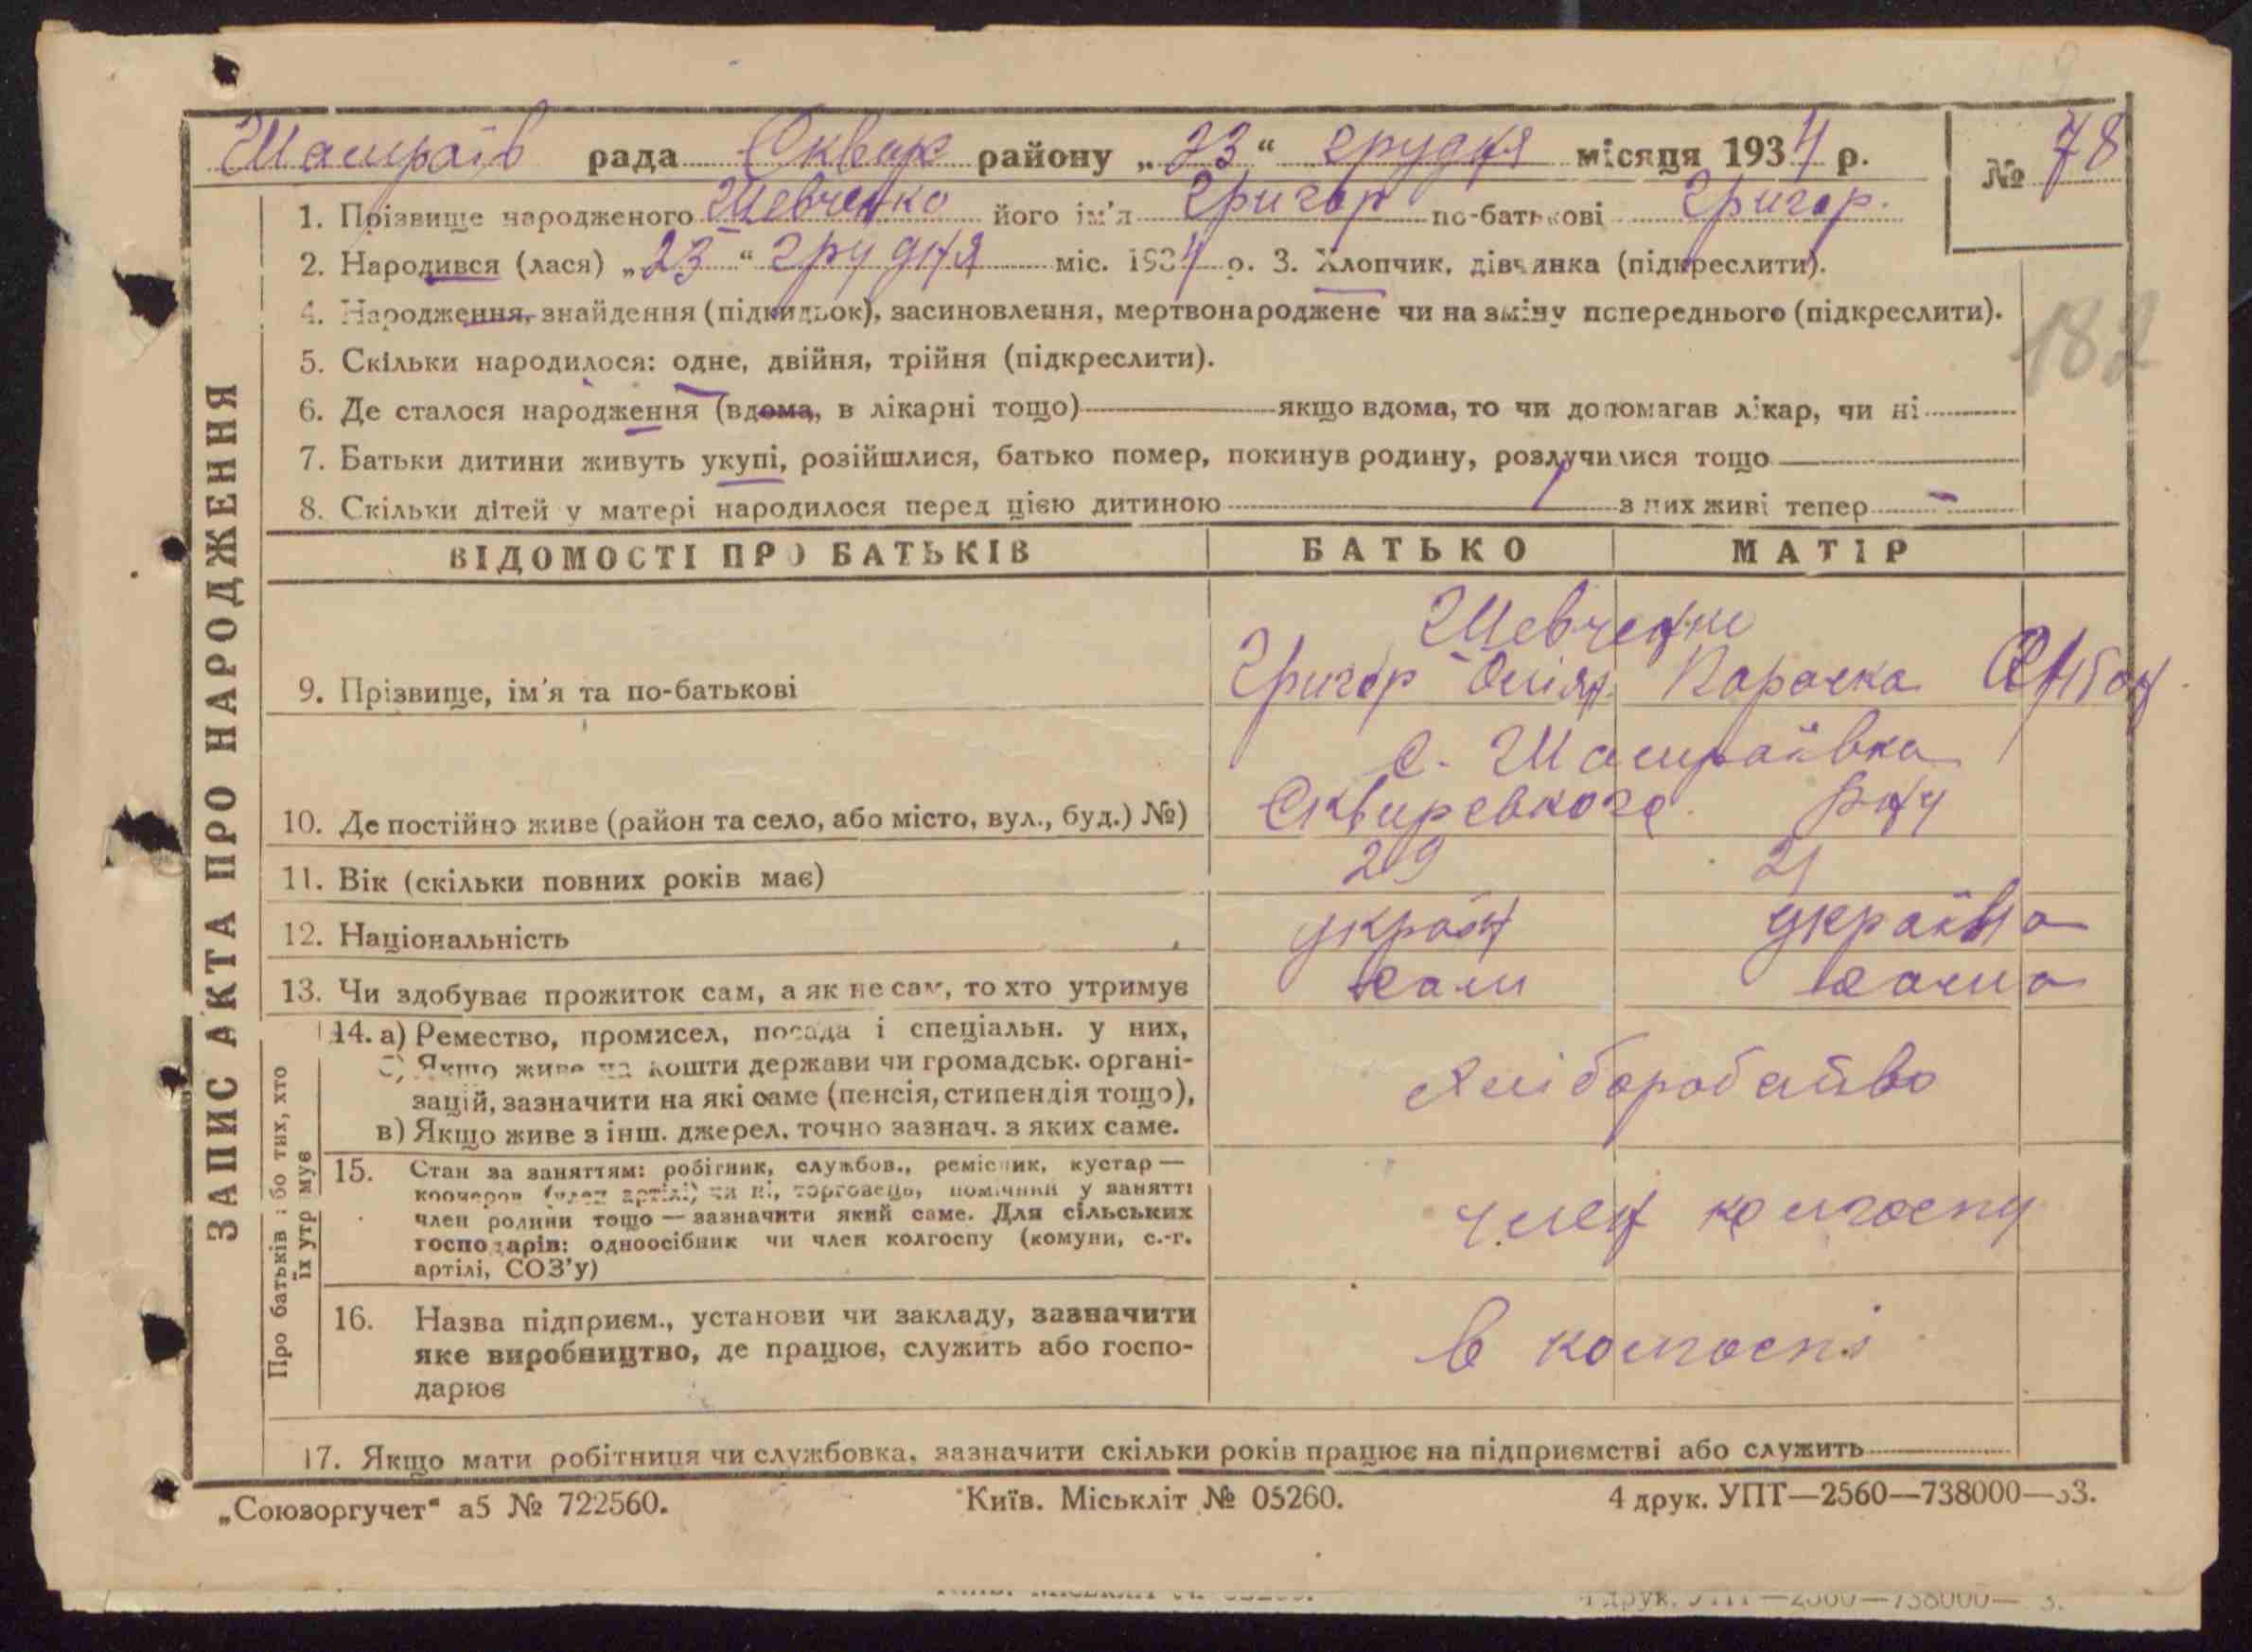 Шамраїв рада Сквир району „23“ грудня місяця 1934 р. № 78
1. Прізвище народженого Шевченко його ім'я Григор по-батькові Григор.
2. Народився (лася) „23“ грудня міс. 1934 р. 3. Хлопчик, дівчинка (підкреслити).
4. Народження, знайдення (підкидьок), засиновлення, мертвонароджене чи на зміну попереднього (підкреслити).
182
5. Скільки народилося: одне, двійня, трійня (підкреслити).
6. Де сталося народження (вдома, в лікарні тощо) якщо вдома, то чи допомагав лікар, чи ні
7. Батьки дитини живуть укупі, розійшлися, батько помер, покинув родину, розлучилися тощо
8. Скільки дітей у матері народилося перед цією дитиною 1 з них живі тепер -
ЗАПИС АКТА ПРО НАРОДЖЕННЯ
ВІДОМОСТІ ПРО БАТЬКІВ БАТЬКО МАТІР
Шевченки
9. Прізвище, ім'я та по-батькові Григор Параска
с. Шамраївка
10. Де постійно живе (район та село, або місто, вул., буд.) №) Сквирського р-ну
11. Вік (скільки повних років має) 29 21
12. Національність україн україна
13. Чи здобуває прожиток сам, а як не сам, то хто утримує сам сама
Про батьків або тих, хто їх утримує
14. а) Ремество, промисел, посада і спеціальн. у них,
б) Якщо живе на кошти держави чи громадськ. органі-
зацій, зазначити на які саме (пенсія, стипендія тощо),
в) Якщо живе з інш. джерел, точно зазнач. з яких саме.
хліборобство
15. Стан за заняттям: робітник, службов., ремісник, кустар —
кооперов. (член артілі) чи ні, торговець, помічник у занятті
член родини тощо — зазначити який саме. Для сільських
господарів: одноосібник чи член колгоспу (комуни, с.-г.
артілі, СОЗ'у)
член колгоспу
16. Назва підприєм., установи чи закладу, зазначити
яке виробництво, де працює, служить або госпо-
дарює
в колгоспі
17. Якщо мати робітниця чи службовка, зазначити скільки років працює на підприємстві або служить
„Союзоргучет“ а5 № 722560. Київ. Міськліт № 05260. 4 друк. УПТ—2560—738000—33.